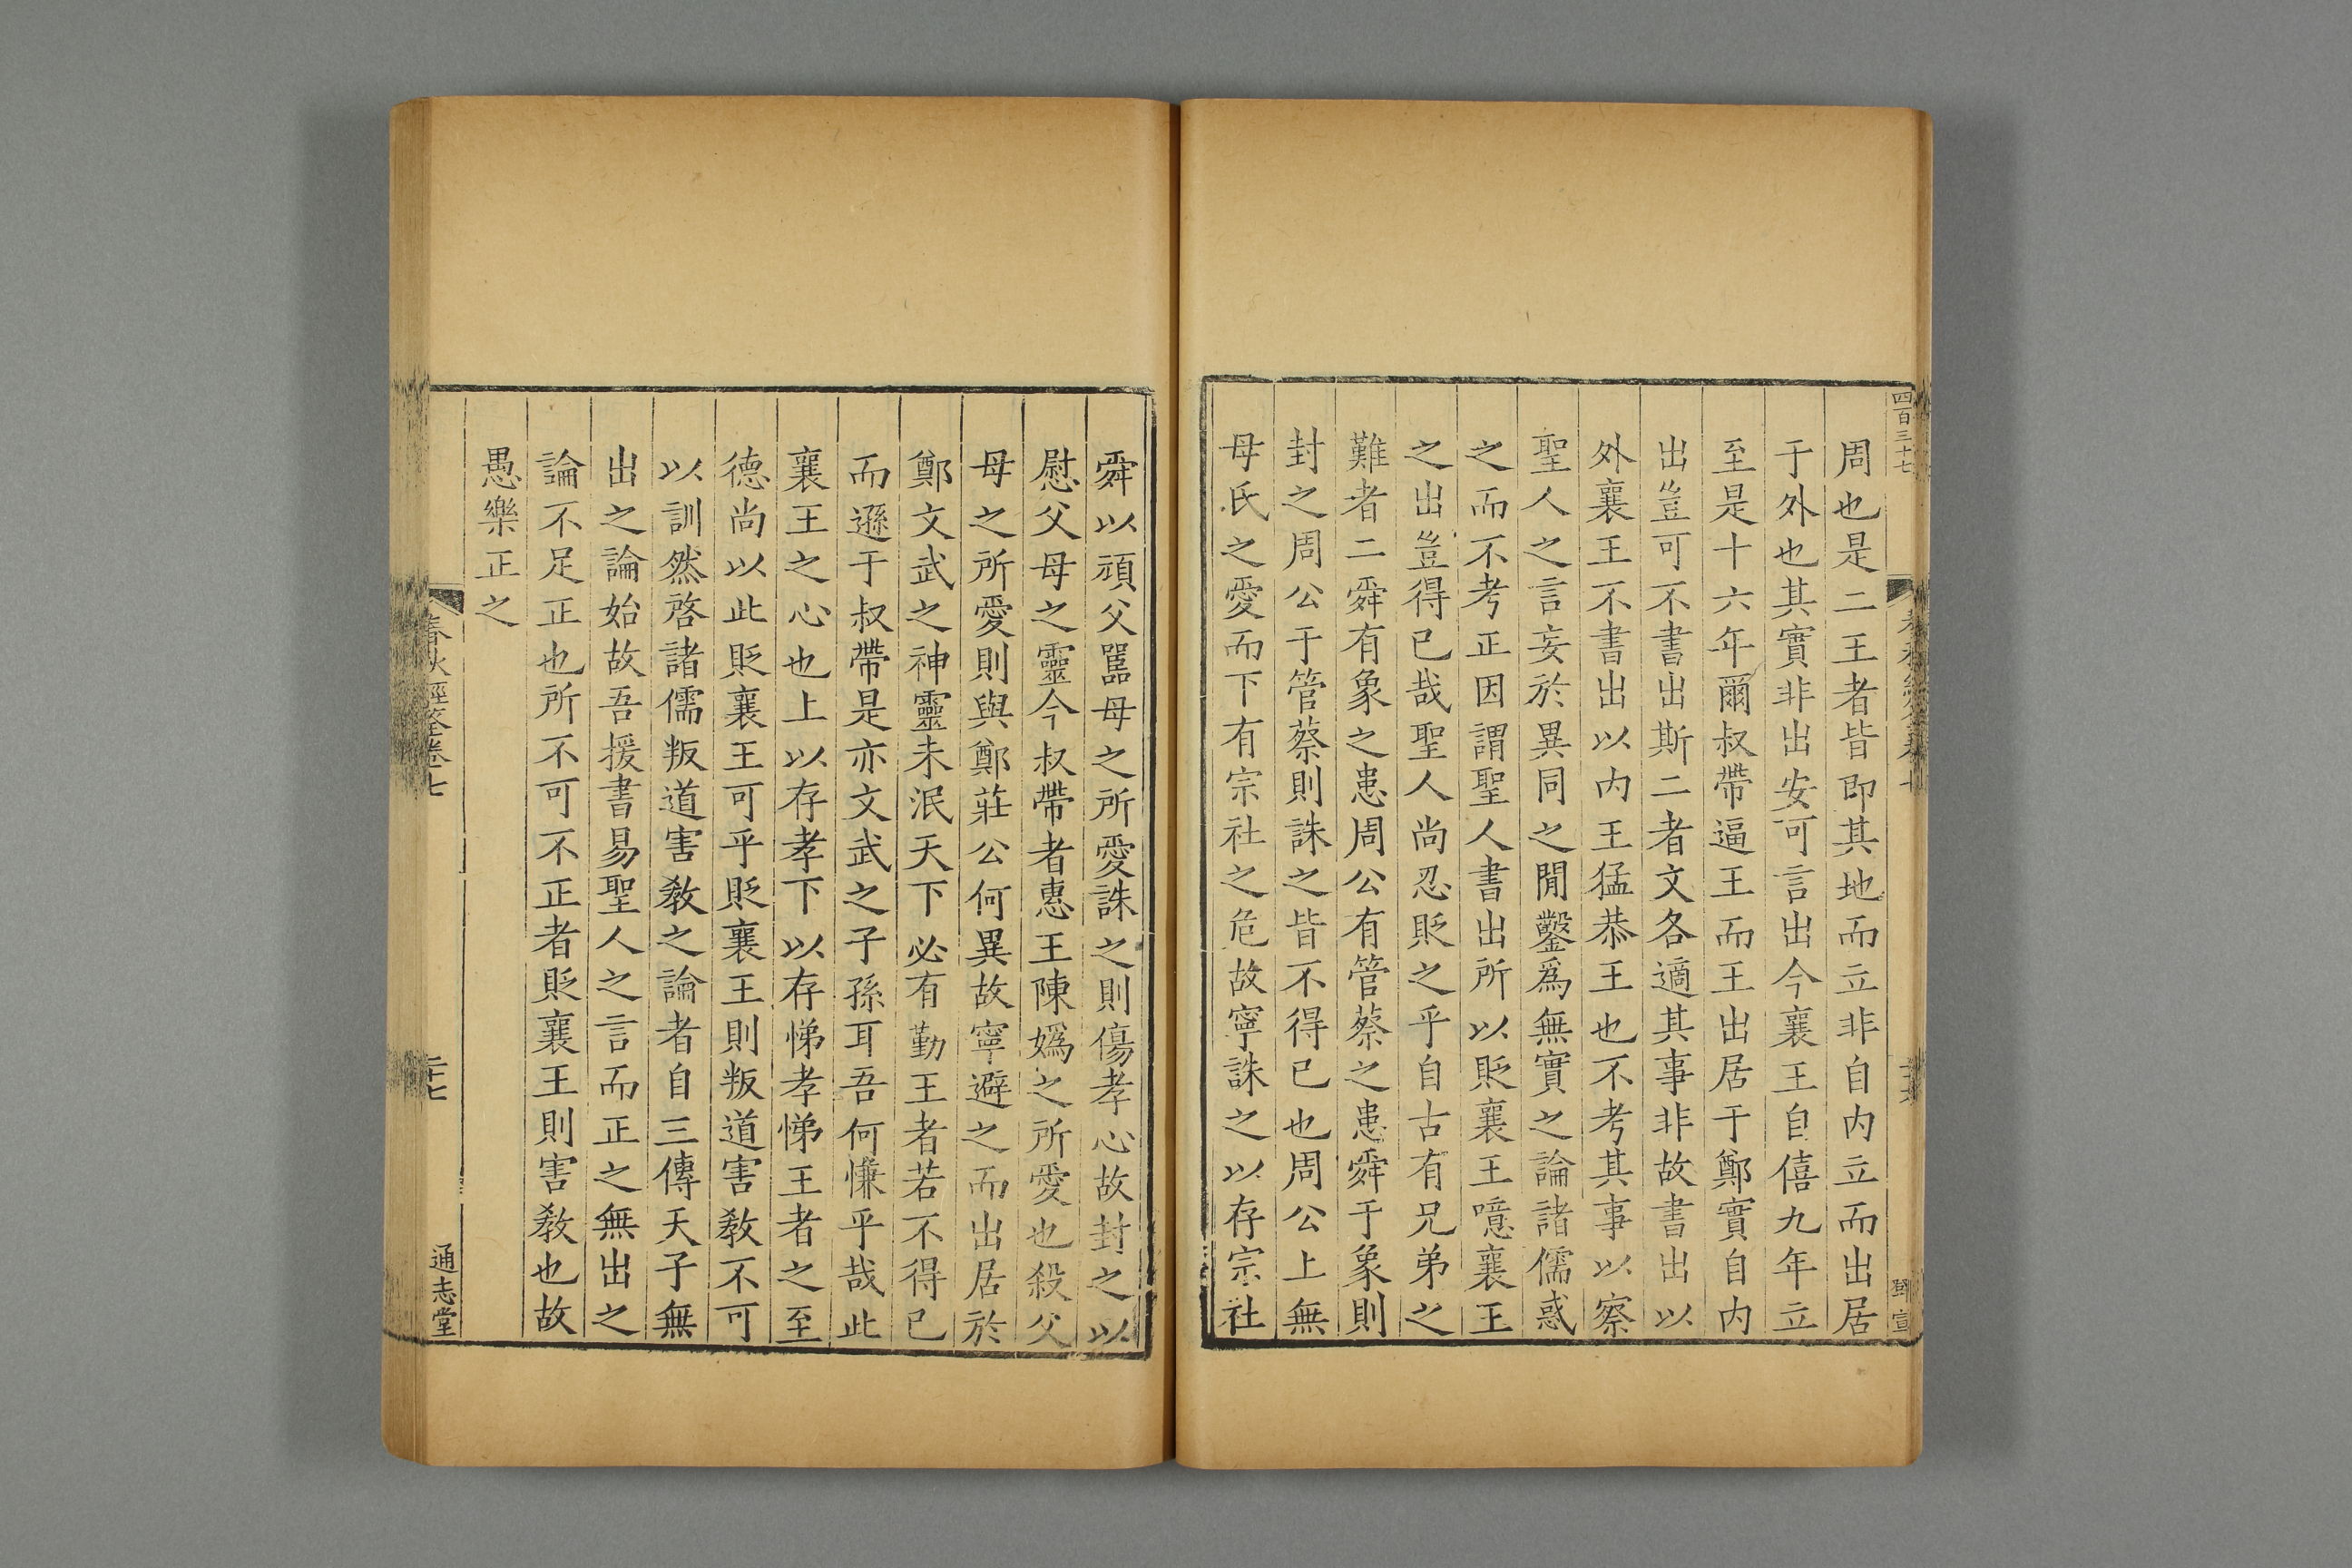 四百三十七
鄧宣
周也是二王者皆即其地而立非自内立而出居
于外也其實非出安可言出今襄王自僖九年立
至是十六年爾叔帶逼王而王出居于鄭實自内
出豈可不書出斯二者文各適其事非故書出以
外襄王不書出以内王猛恭王也不考其事以察
聖人之言妄於異同之閒鑿爲無實之論諸儒惑
之而不考正因謂聖人書出所以貶襄王噫襄王
之出豈得已哉聖人尚忍貶之乎自古有兄弟之
難者二舜有象之患周公有管蔡之患舜于象則
封之周公于管蔡則誅之皆不得已也周公上無
母氏之愛而下有宗社之危故寧誅之以存宗社
舜以頑父嚚母之所愛誅之則傷孝心故封之以
慰父母之靈今叔帶者惠王陳嬀之所愛也殺父
母之所愛則與鄭莊公何異故寧避之而出居於
鄭文武之神靈未泯天下必有勤王者若不得已
而遜于叔帶是亦文武之子孫耳吾何慊乎哉此
襄王之心也上以存孝下以存悌孝悌王者之至
德尚以此貶襄王可乎貶襄王則叛道害教不可
以訓然啓諸儒叛道害教之論者自三傳天子無
出之論始故吾援書易聖人之言而正之無出之
論不足正也所不可不正者貶襄王則害教也故
愚樂正之
春秋經筌卷七
二十七
通志堂